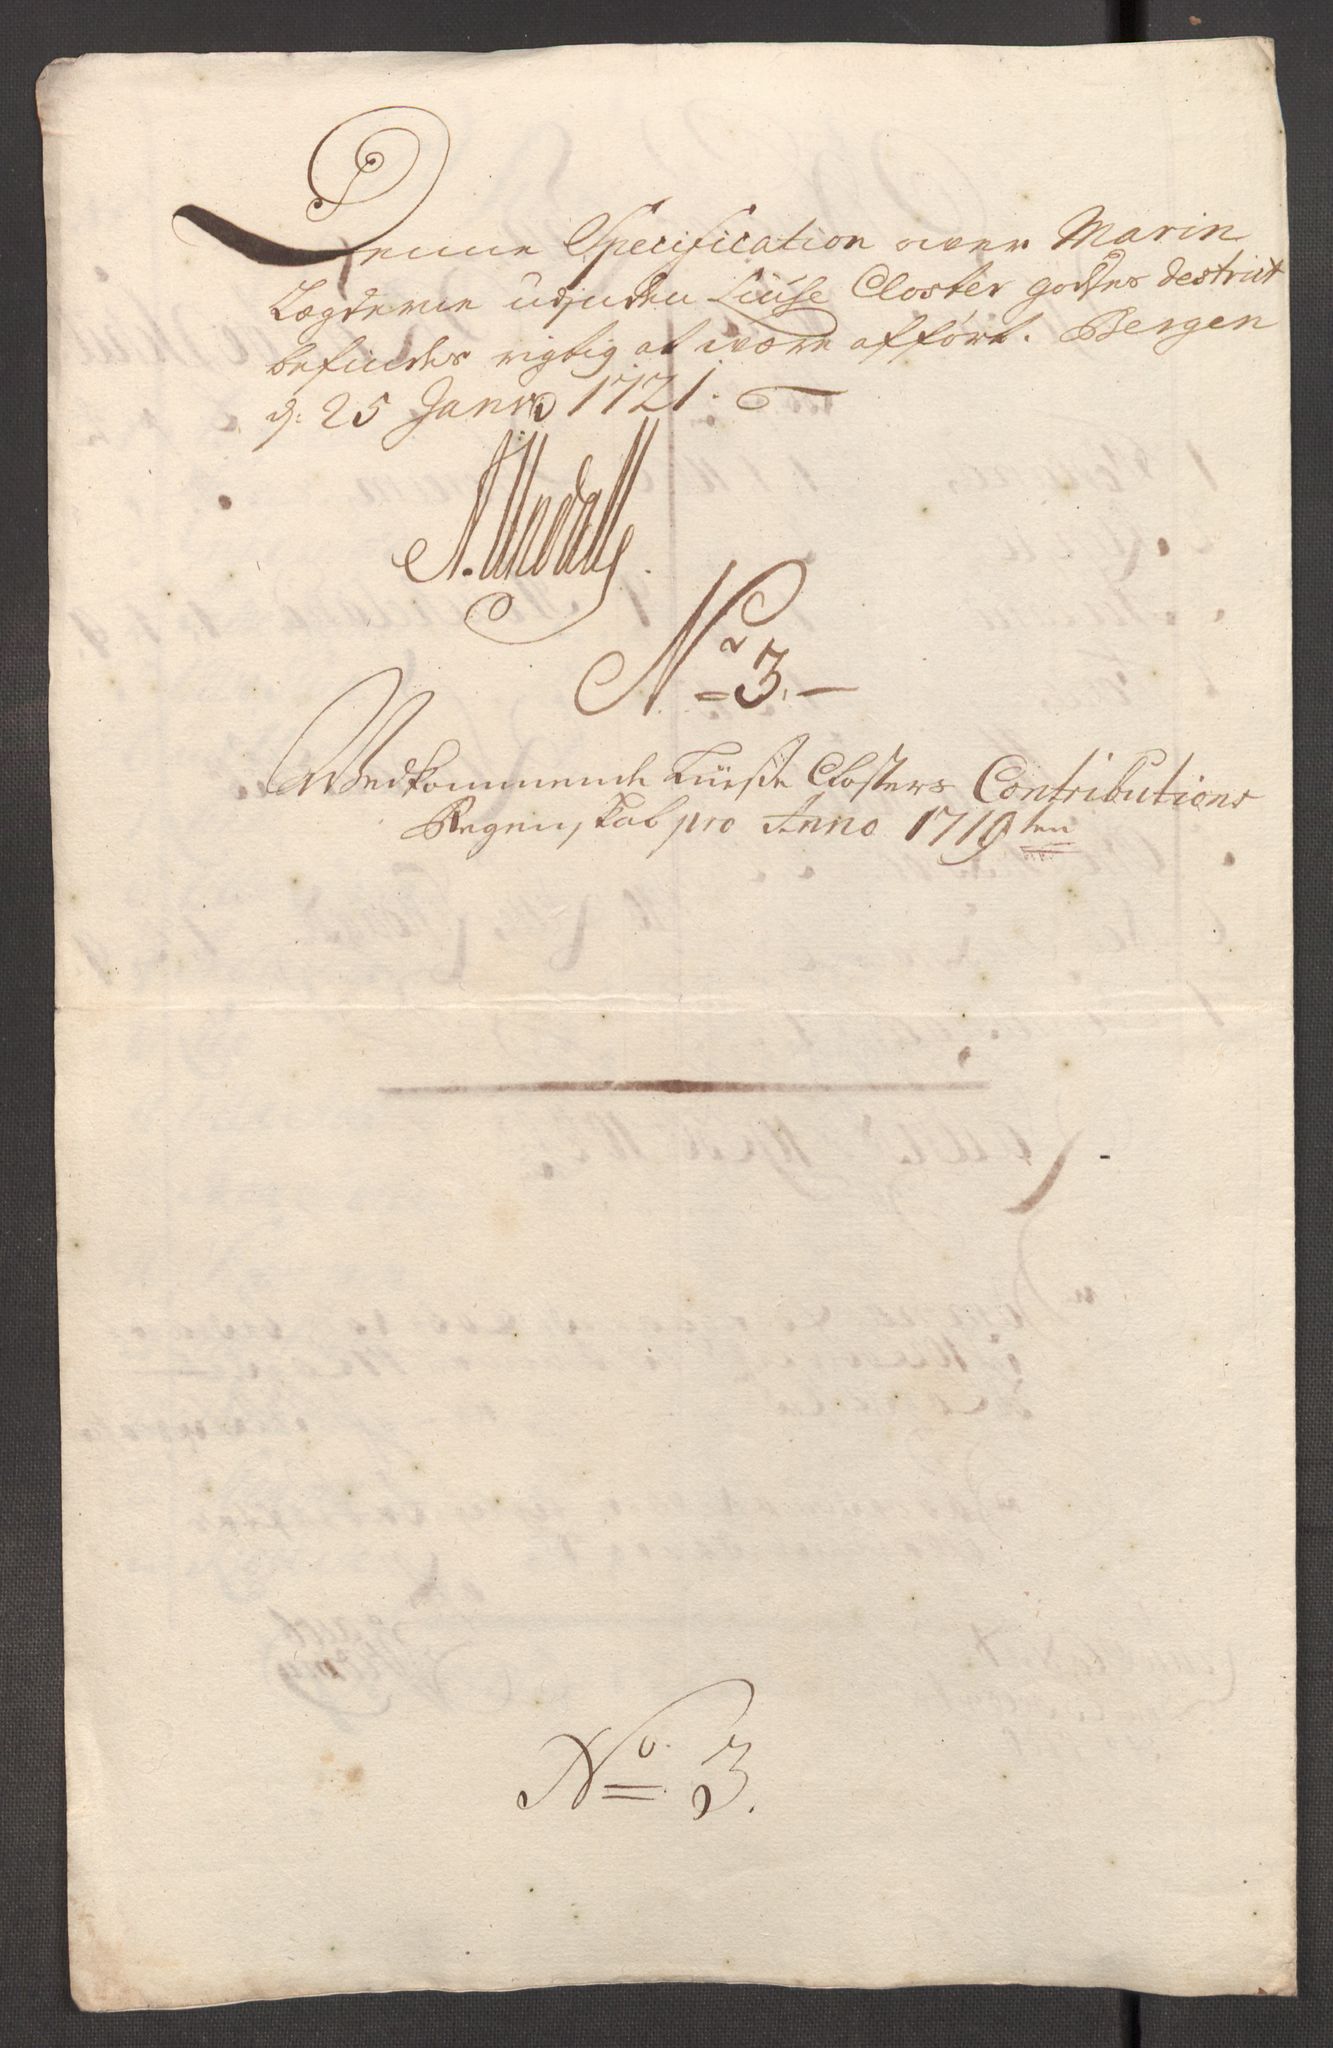 Denne Specification over Marin
Lægderne udj nden Liuse Closter godses destrict
befindes rigtig at være afført. Bergen
d: 25 Janrj 1721.
No 3.
Vedkommende Lüeße Closters Contributions
Regenskab pro Anno 1719ten
No 3.